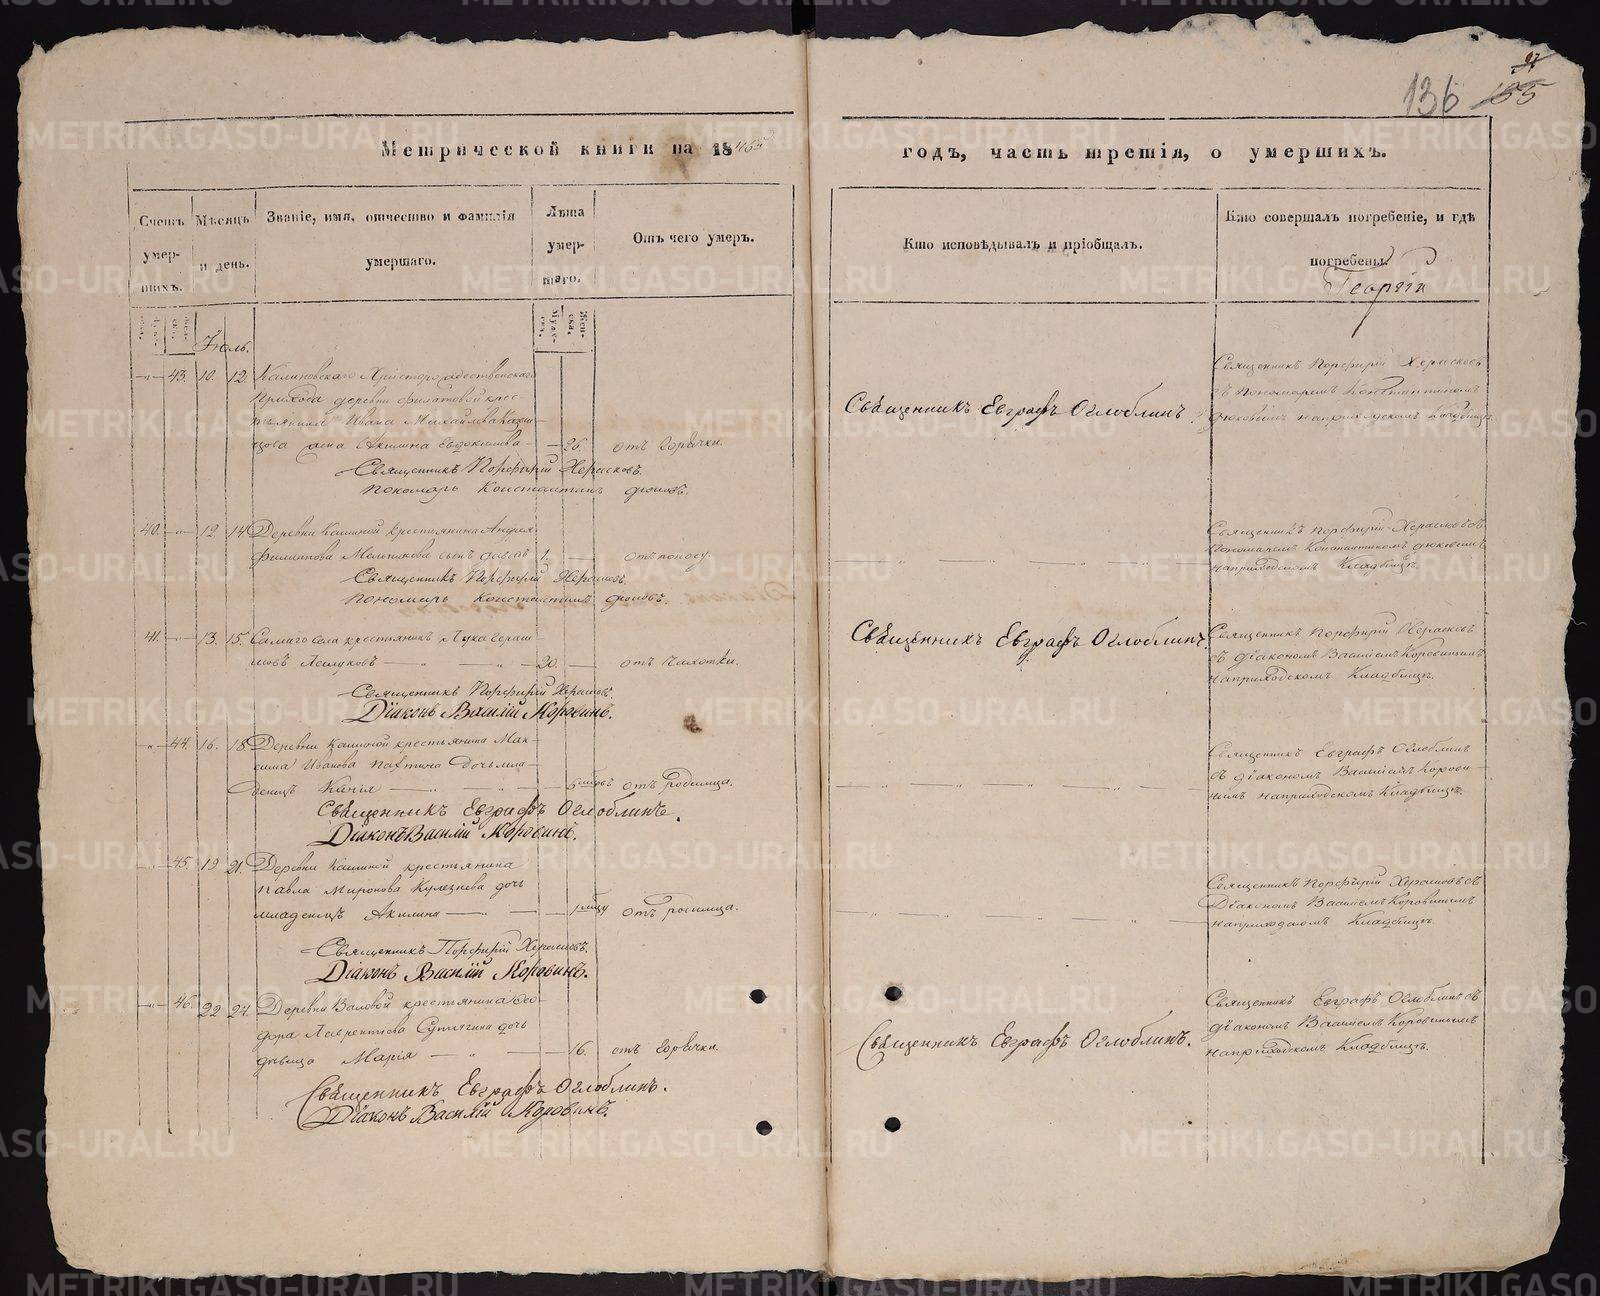 136 155
Метрической книги на 18465 годъ, часть третія, о умершихъ.
Счетъ умершихъ.
Мѣсяцъ и день.
Званіе, имя, отчество и фамилія умершаго.
Лѣта умершаго.
Отъ чего умеръ.
Кто исповѣдывалъ и пріобщалъ.
Кто совершалъ погребеніе, и гдѣ погребены.
Георгія
Іюль.
43. 10. 12. Калиновскаго Христорождественскаго
прихода деревни Филатовой крес-
тьянина Ивана Михайлова
жена Акилина Евдокимова — 26. отъ горячки.
Священникъ Порфирій Херасковъ.
Пономарь Константинъ
Священникъ Евграфъ Оглоблинъ.
Священникъ Порфирій Херасковъ
съ Пономаремъ Константиномъ
на приходскомъ кладбищѣ
40. 12. 14. Деревни Кашиной крестьянина Андрея
Филиппова Мельникова сынъ 1. отъ поносу.
Священникъ Порфирій Херасковъ.
Пономарь Константинъ
Священникъ Порфирій Херасковъ съ
Пономаремъ Константиномъ
на приходскомъ Кладбищѣ.
41. 13. 15. Самаго села крестьянинъ Лука Гераси-
мовъ — 20. отъ чахотки.
Священникъ Порфирій Херасковъ.
Діаконъ Василій Коровинъ.
Священникъ Евграфъ Оглоблинъ.
Священникъ Порфирій Херасковъ
съ діакономъ Василіемъ Коровинымъ
на приходскомъ Кладбищѣ.
44. 16. 18. Деревни Кашиной крестьянина Мак-
сима Иванова дочь мла-
денецъ — 6 отъ родимца.
Священникъ Евграфъ Оглоблинъ.
Діаконъ Василій Коровинъ.
Священникъ Евграфъ Оглоблинъ
съ діакономъ Василіемъ Корови-
нымъ на приходскомъ Кладбищѣ.
45. 19 21. Деревни Кашиной крестьянина
Павла Миронова дочь
младенецъ Акилина — 1 отъ родимца.
Священникъ Порфирій Херасковъ.
Діаконъ Василій Коровинъ.
Священникъ Порфирій Херасковъ съ
Діакономъ Василіемъ Коровинымъ
на приходскомъ Кладбищѣ.
46. 22 24. Деревни Валовой крестьянина Ѳео-
дора Лаврентьева дочь
дѣвица Марія — 16. отъ горячки.
Священникъ Евграфъ Оглоблинъ.
Діаконъ Василій Коровинъ.
Священникъ Евграфъ Оглоблинъ.
Священникъ Евграфъ Оглоблинъ съ
діакономъ Василіемъ Коровинымъ
на приходскомъ Кладбищѣ.
METRIKI.GASO-URAL.RU